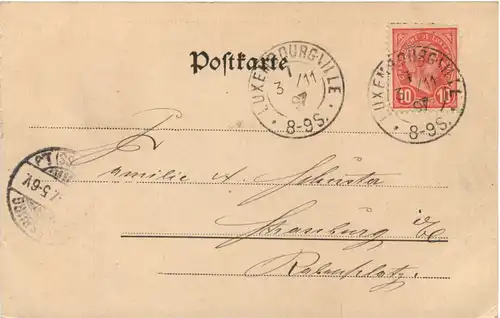 Postkarte
LUXEMBOURG-VILLE
3 1/11 97
8-9S.
LUXEMBOURG-VILLE
1/11 97
8-9S.
10 10
Familie A. Schuster
Strassburg i/E
Rabenplatz.
5-6V